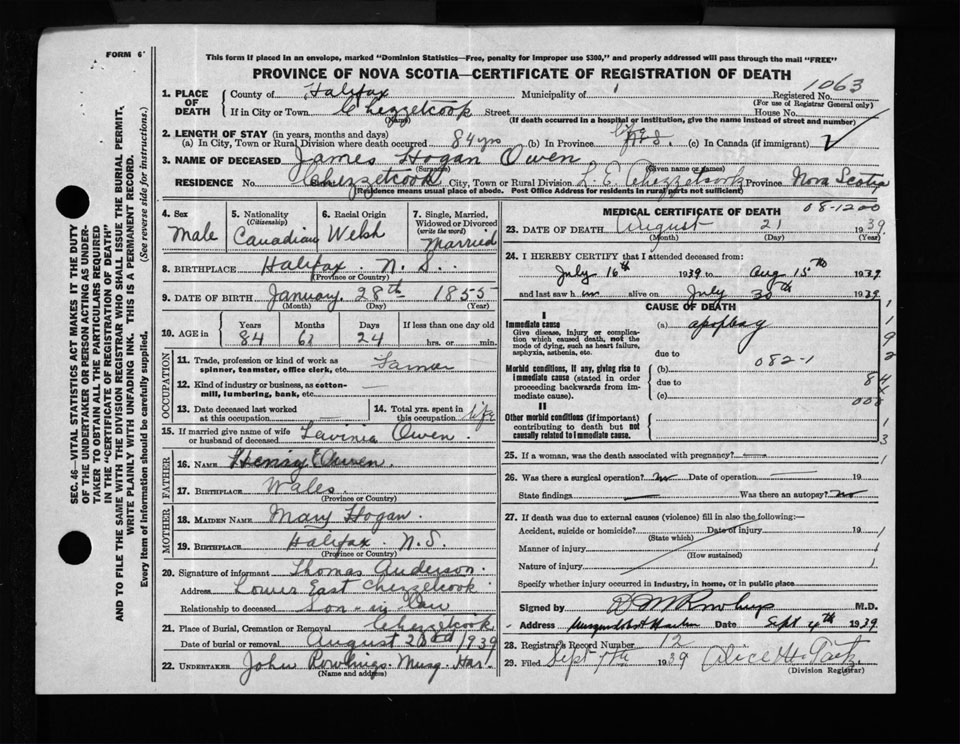 FORM 6
This form if placed in an envelope, marked "Dominion Statistics—Free, penalty for improper use $300," and properly addressed will pass through the mail "FREE"
PROVINCE OF NOVA SCOTIA—CERTIFICATE OF REGISTRATION OF DEATH
1. PLACE OF DEATH { County of Halifax Municipality of Registered No. 1063
(For use of Registrar General only)
If in City or Town Chezzetcook Street House No.
(Name) (If death occurred in a hospital or institution, give the name instead of street and number)
2. LENGTH OF STAY (in years, months and days)
(a) In City, Town or Rural Division where death occurred 84 yrs (b) In Province (c) In Canada (if immigrant)
3. NAME OF DECEASED James Hogan Owen
(Surname) (Given name or names)
RESIDENCE No. Street Chezzetcook City, Town or Rural Division L. E. Chezzetcook Province Nova Scotia
(Residence means usual place of abode. Post Office Address for residents in rural parts not sufficient)
4. Sex Male
5. Nationality (Citizenship) Canadian
6. Racial Origin Welsh
7. Single, Married, Widowed or Divorced (write the word) Married
8. BIRTHPLACE Halifax N. S.
(Province or Country)
9. DATE OF BIRTH January 28th 1855
(Month) (Day) (Year)
10. AGE in Years Months Days If less than one day
84 24 hrs. or min.
OCCUPATION
11. Trade, profession or kind of work as spinner, teamster, office clerk, etc. Farmer
12. Kind of industry or business, as cotton-mill, lumbering, bank, etc.
13. Date deceased last worked at this occupation
14. Total yrs. spent in this occupation life
15. If married give name of wife or husband of deceased Lavinia Owen
FATHER
16. NAME Henry Owen
17. BIRTHPLACE Wales
(Province or Country)
MOTHER
18. MAIDEN NAME Mary Hogan
19. BIRTHPLACE Halifax N. S.
(Province or Country)
20. Signature of informant Thomas Anderson
Address Lower East Chezzetcook
Relationship to deceased Son-in-law
21. Place of Burial, Cremation or Removal Chezzetcook
Date of burial or removal August 1939
22. UNDERTAKER John Rowlings Musq. Har.
(Name and address)
MEDICAL CERTIFICATE OF DEATH
08-1200
23. DATE OF DEATH August 21 1939
(Month) (Day) (Year)
24. I HEREBY CERTIFY that I attended deceased from:
July 16th 1939 to Aug 15th 1939
and last saw him alive on July 30th 1939
CAUSE OF DEATH
I
Immediate cause
Give disease, injury or complication which caused death, not the mode of dying, such as heart failure, asphyxia, asthenia, etc.
(a)
due to
Morbid conditions, if any, giving rise to immediate cause (stated in order proceeding backwards from immediate cause).
(b) 082-1
due to
(c)
II
Other morbid conditions (if important) contributing to death but not causally related to immediate cause.
25. If a woman, was the death associated with pregnancy?
26. Was there a surgical operation? no Date of operation 19
State findings Was there an autopsy? no
27. If death was due to external causes (violence) fill in also the following:—
Accident, suicide or homicide? Date of injury 19
(State which)
Manner of injury
(How sustained)
Nature of injury
Specify whether injury occurred in industry, in home, or in public place
Signed by M.D.
Address Musquodoboit Harbor Date Sept 4th 1939
28. Registrar's Record Number 12
29. Filed Sept 7th 1939
(Division Registrar)
SEC. 46—VITAL STATISTICS ACT MAKES IT THE DUTY OF THE UNDERTAKER OR PERSON ACTING AS UNDERTAKER TO OBTAIN ALL THE PARTICULARS REQUIRED IN THE "CERTIFICATE OF REGISTRATION OF DEATH" AND TO FILE THE SAME WITH THE DIVISION REGISTRAR WHO SHALL ISSUE THE BURIAL PERMIT.
WRITE PLAINLY WITH UNFADING INK. THIS IS A PERMANENT RECORD.
Every item of information should be carefully supplied. (See reverse side for instructions.)